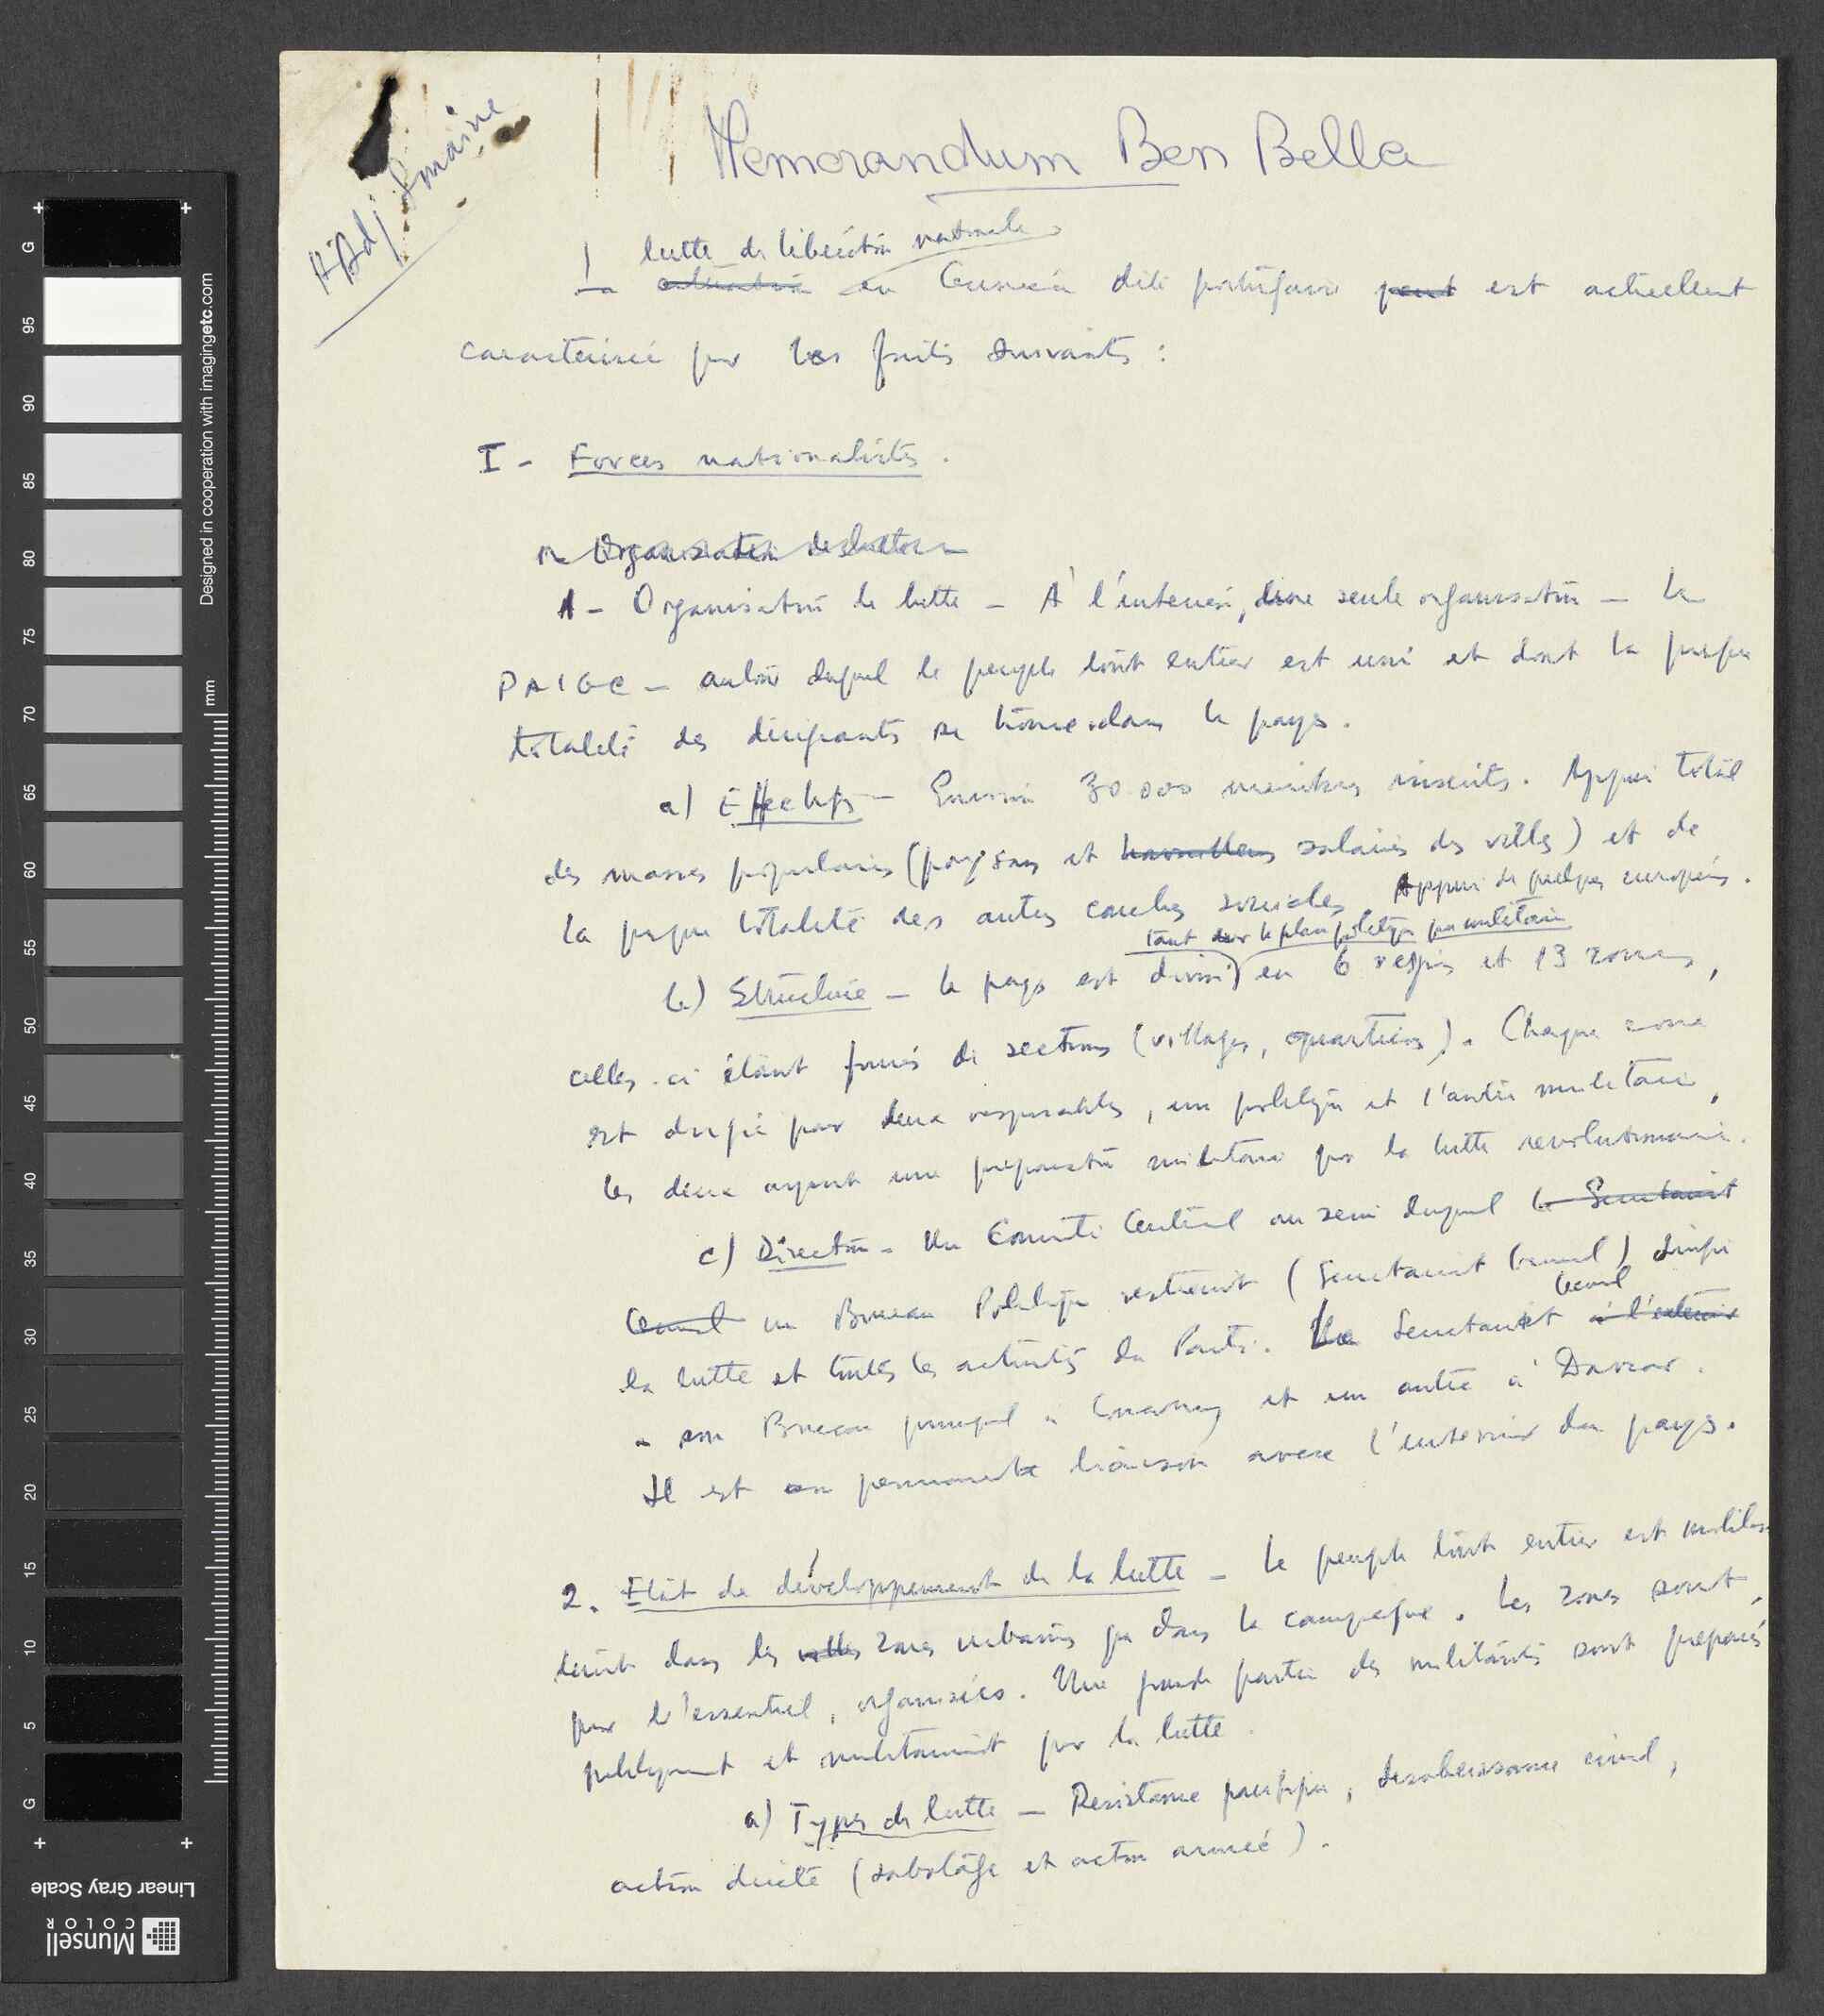 HAdj Smaïne
Memorandum Ben Bella
lutte de libération nationale
La situation en Guinée dite portugaise peut est actuellement
caracterisée par les faits suivants :
I - Forces nationalistes.
Organisation de lutte
1 - Organisation de lutte - À l'interieur, une seule organisation - le
PAIGC - autour duquel le peuple tout entier est uni et dont la presque
totalité des dirigeants se trouve dans le pays.
a) Effectifs - Environ 30.000 membres inscrits. Appui total
des masses populaires (paysans et travailleurs salariés des villes) et de
la presque totalité des autres couches sociales. Appui de quelques européens.
tant sur le plan politique que militaire
b) Structure - le pays est divisé en 6 regions et 13 zones,
celles-ci étant formés de sections (villages, quartiers). Chaque zone
est dirigée par deux responsables, un politique et l'autre militaire,
les deux ayant une préparation militaire pour la lutte revolutionnaire.
c) Direction - Un Comité Central au sein duquel le Secretariat
General un Bureau Politique restreint (Secretariat General) dirige
General
la lutte et toutes les activités du Parti. Le Secretariat à l'exterieur
a son Bureau principal à Conakry et un autre à Dakar.
Il est en permanente liaison avec l'interieur du pays.
2. Etat de développement de la lutte - Le peuple tout entier est mobilisé
tant dans les villes zones urbaines que dans la campagne. Les zones sont,
pour l'essentiel, organisées. Une grande partie des militants sont preparés
politiquement et militairement pour la lutte.
a) Types de lutte - Resistance pacifique, desobeissance civil,
action directe (sabotage et action armée).
Designed in cooperation with imagingetc.com
mm
G 95 90 85 80 75 70 65 60 55 50 45 40 35 30 25 20 15 10 5 G
Linear Gray Scale
Munsell COLOR